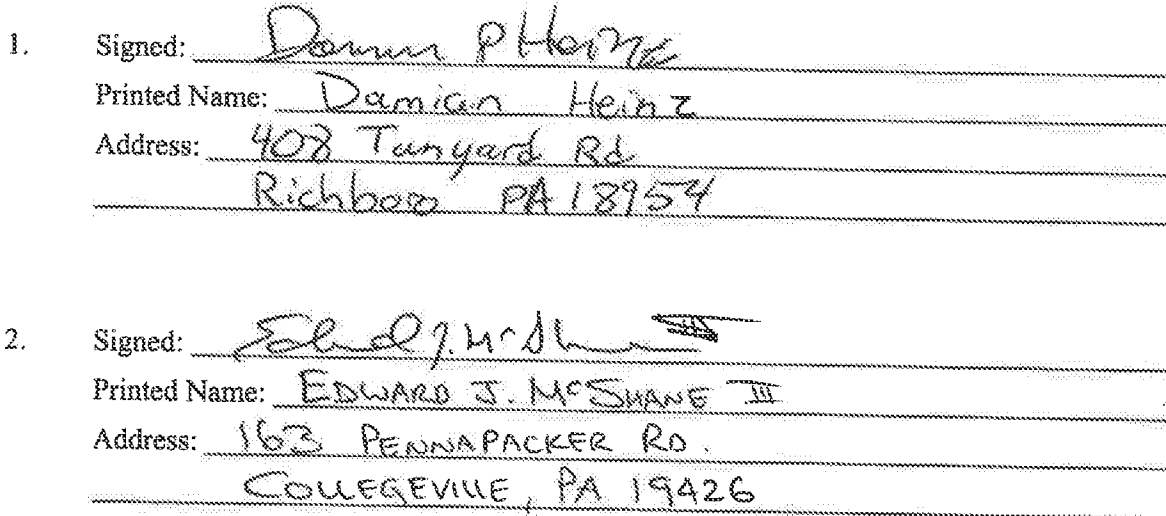 1. Signed: Damian P Heinz
Printed Name: Damian Heinz
Address: 408 Tanyard Rd
Richboro PA 18954
2. Signed: Edward J. McShane III
Printed Name: EDWARD J. McSHANE III
Address: 163 PENNAPACKER RD.
COLLEGEVILLE, PA 19426